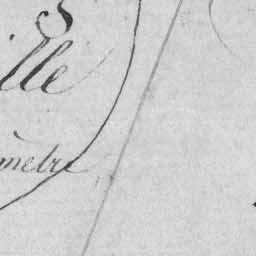 ille
metre